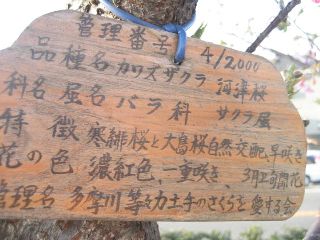 管理番号 4/2000
品種名 カワズザクラ 河津桜
科名 属名 バラ科 サクラ属
特徴 寒緋桜と大島桜自然交配、早咲き
花の色 濃紅色、一重咲き、3月上旬開花
管理名 多摩川等々力土手のさくらを愛する会